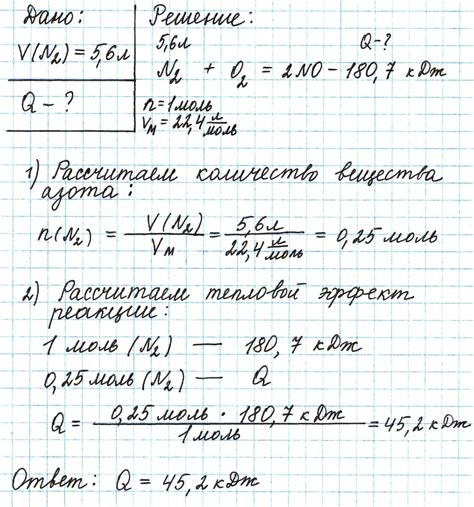 Дано:
V(N₂) = 5,6л
Q – ?
Решение:
5,6л Q-?
N₂ + O₂ = 2NO – 180,7 кДж
n = 1 моль
Vм = 22,4 л/моль
1) Рассчитаем количество вещества
азота:
n(N₂) = V(N₂)/Vм = 5,6л/22,4 л/моль = 0,25 моль
2) Рассчитаем тепловой эффект
реакции:
1 моль (N₂) — 180,7 кДж
0,25 моль (N₂) — Q
Q = 0,25 моль · 180,7 кДж/1 моль = 45,2 кДж
Ответ: Q = 45,2 кДж